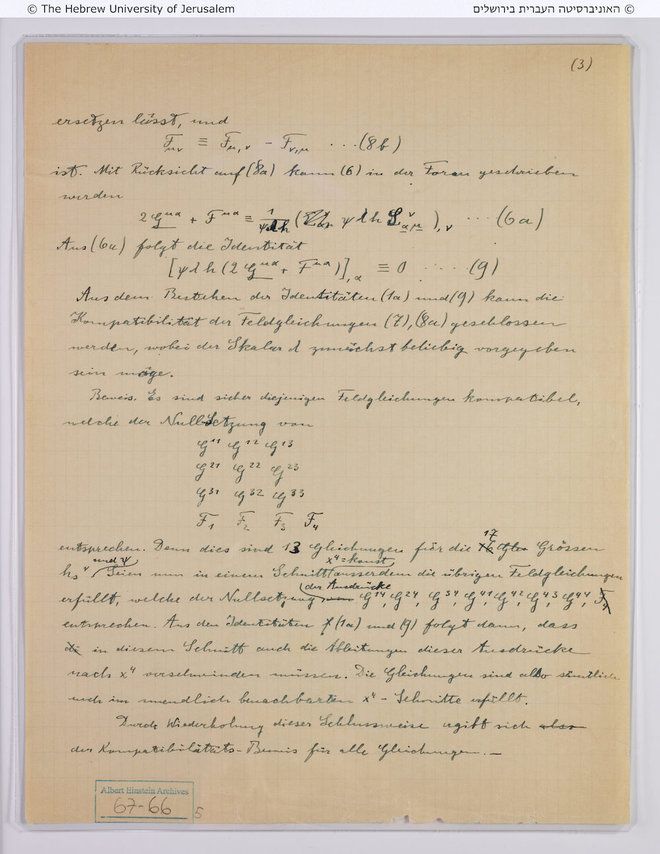 © The Hebrew University of Jerusalem
האוניברסיטה העברית בירושלים ©
(3)
ersetzen lässt, und
F_μν ≡ F_μ,ν - F_ν,μ ... (8b)
ist. Mit Rücksicht auf (8a) kann (6) in der Form geschrieben
werden
2 G^μα + F^μα ≡ 1/ψλh ( ψλh ),ν ... (6a)
Aus (6a) folgt die Identität
[ψλh(2 G^μα + F^μα)],α ≡ 0 .... (9)
Aus dem Bestehen der Identitäten (1a) und (9) kann die
Kompatibilität der Feldgleichungen (7), (8a) geschlossen
werden, wobei der Skalar λ zunächst beliebig vorgegeben
sein möge.
Beweis. Es sind sicher diejenigen Feldgleichungen kompatibel,
welche der Nullsetzung von
G^11 G^12 G^13
G^21 G^22 G^23
G^31 G^32 G^33
F_1 F_2 F_3 F_4
17
entsprechen. Denn dies sind 13 Gleichungen für die Grössen
und ψ x^4 = konst
h_s^ν. Seien nun in einem Schnitt ausserdem die übrigen Feldgleichungen
der Ausdrücke
erfüllt, welche der Nullsetzung G^14, G^24, G^34, G^41, G^42, G^43, G^44,
entsprechen. Aus den Identitäten (1a) und (9) folgt dann, dass
in diesem Schnitt auch die Ableitungen dieser Ausdrücke
nach x^4 verschwinden müssen. Die Gleichungen sind also sämtlich
auch im unendlich benachbarten x^4 - Schnitte erfüllt.
Durch Wiederholung dieser Schlussweise ergibt sich also
der Kompatibilitäts-Beweis für alle Gleichungen. —
Albert Einstein Archives
67-66
5